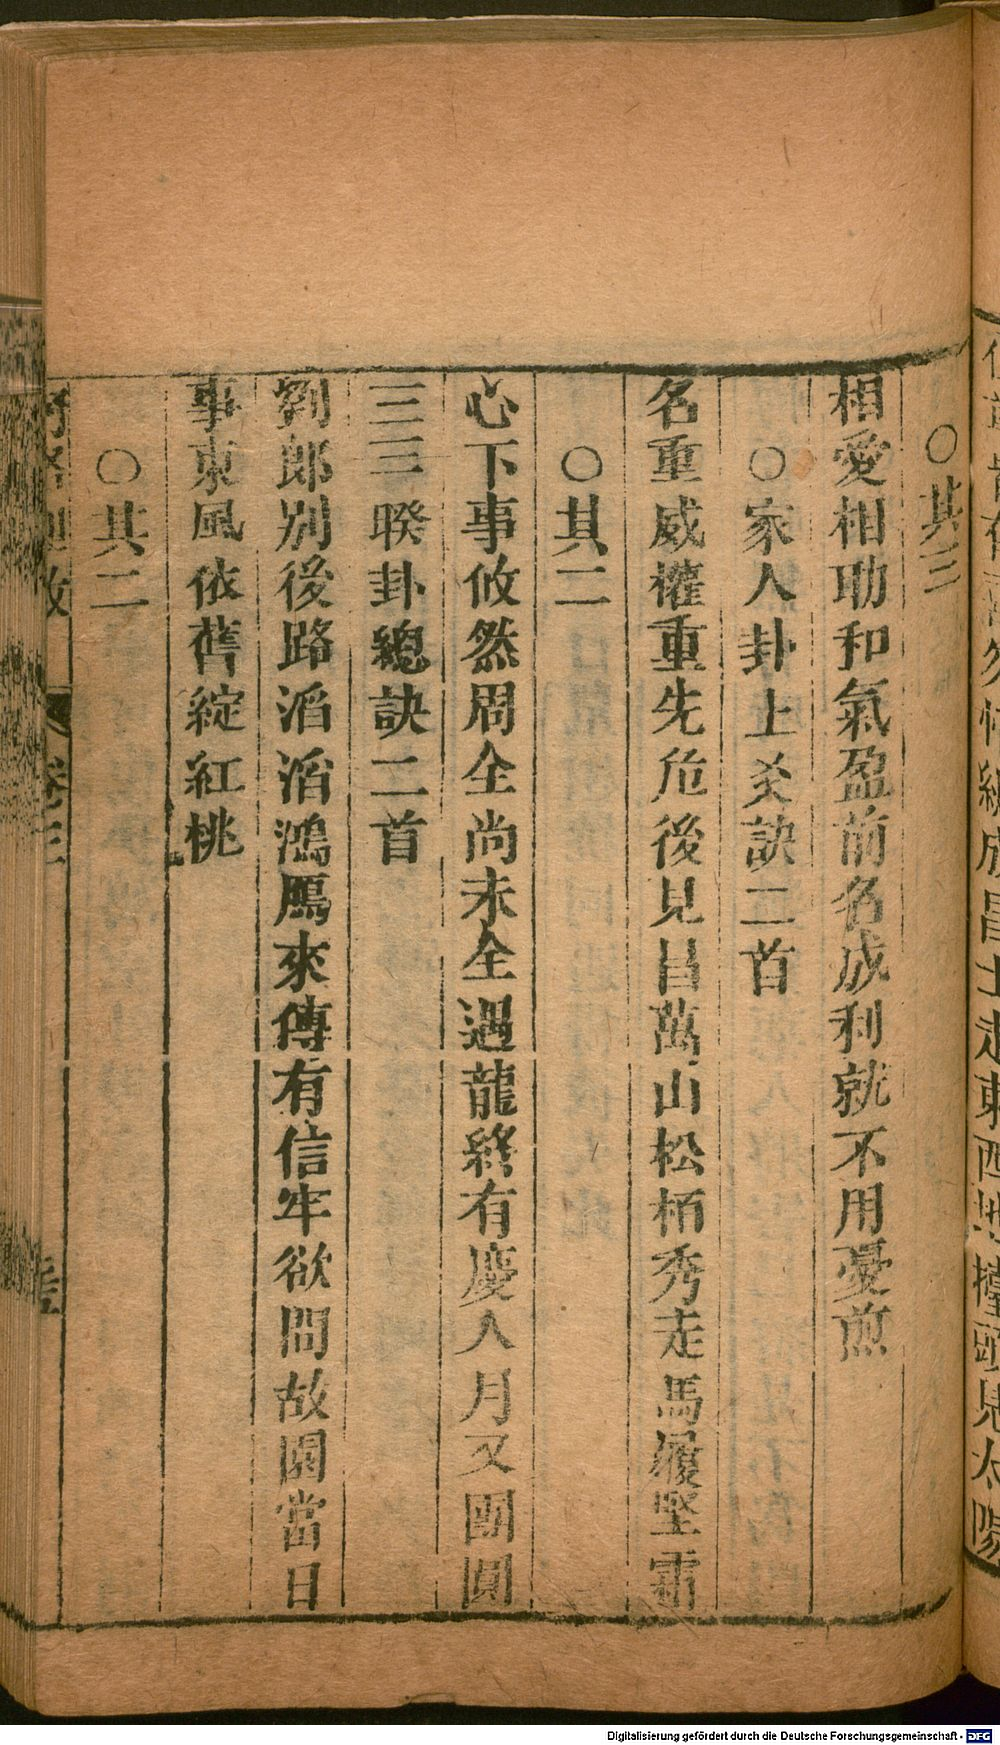 〇其三
相愛相助和氣盈前名成利就不用憂煎
〇家人卦上爻訣二首
名重威權重先危後見昌萬山松栢秀走馬履堅霜
〇其二
心下事攸然周全尚未全遇龍終有慶人月又團圓
三三睽卦總訣二首
劉郎別後路滔滔鴻鴈來傳有信牢欲問故園當日
事東風依舊綻紅桃
〇其二
卷三
Digitalisierung gefördert durch die Deutsche Forschungsgemeinschaft - DFG